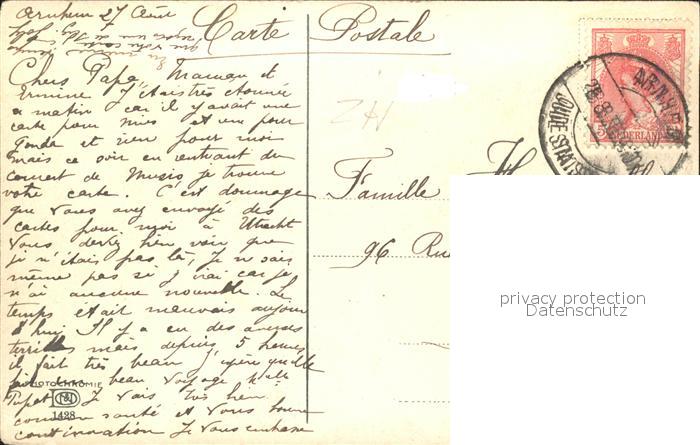 Arnhem 27 Août
Carte Postale
Chers Papa, Maman et
Ermine J'étais très étonnée
a matin car il y avait une
carte pour Mies et une pour
Gonda et rien pour moi
mais ce soir en rentrant du
concert de Musis je trouve
votre carte. C'est dommage
que vous avez envoyé des
cartes pour moi à Utrecht
Vous devez bien voir que
je n'étais pas là, Je ne sais
même pas si j'irai car je
n'ai aucune nouvelle. Le
temps était mauvais aujour
d'hui Il y a eu des averses
terribles mais depuis 5 heures
il fait très beau j'espère qu'elle
beau voyage
Je vais très bien
santé et vous
continuation Je vous embrasse
PHOTOCHROMIE
1428
ZH
Famille H
96 Rue
ARNHEM
NEDERLAND
privacy protection
Datenschutz